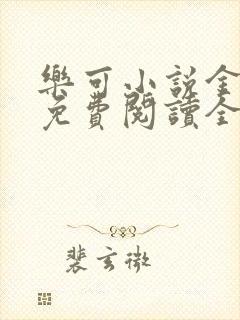 樂可小說全
免費閱讀全
裴玄微